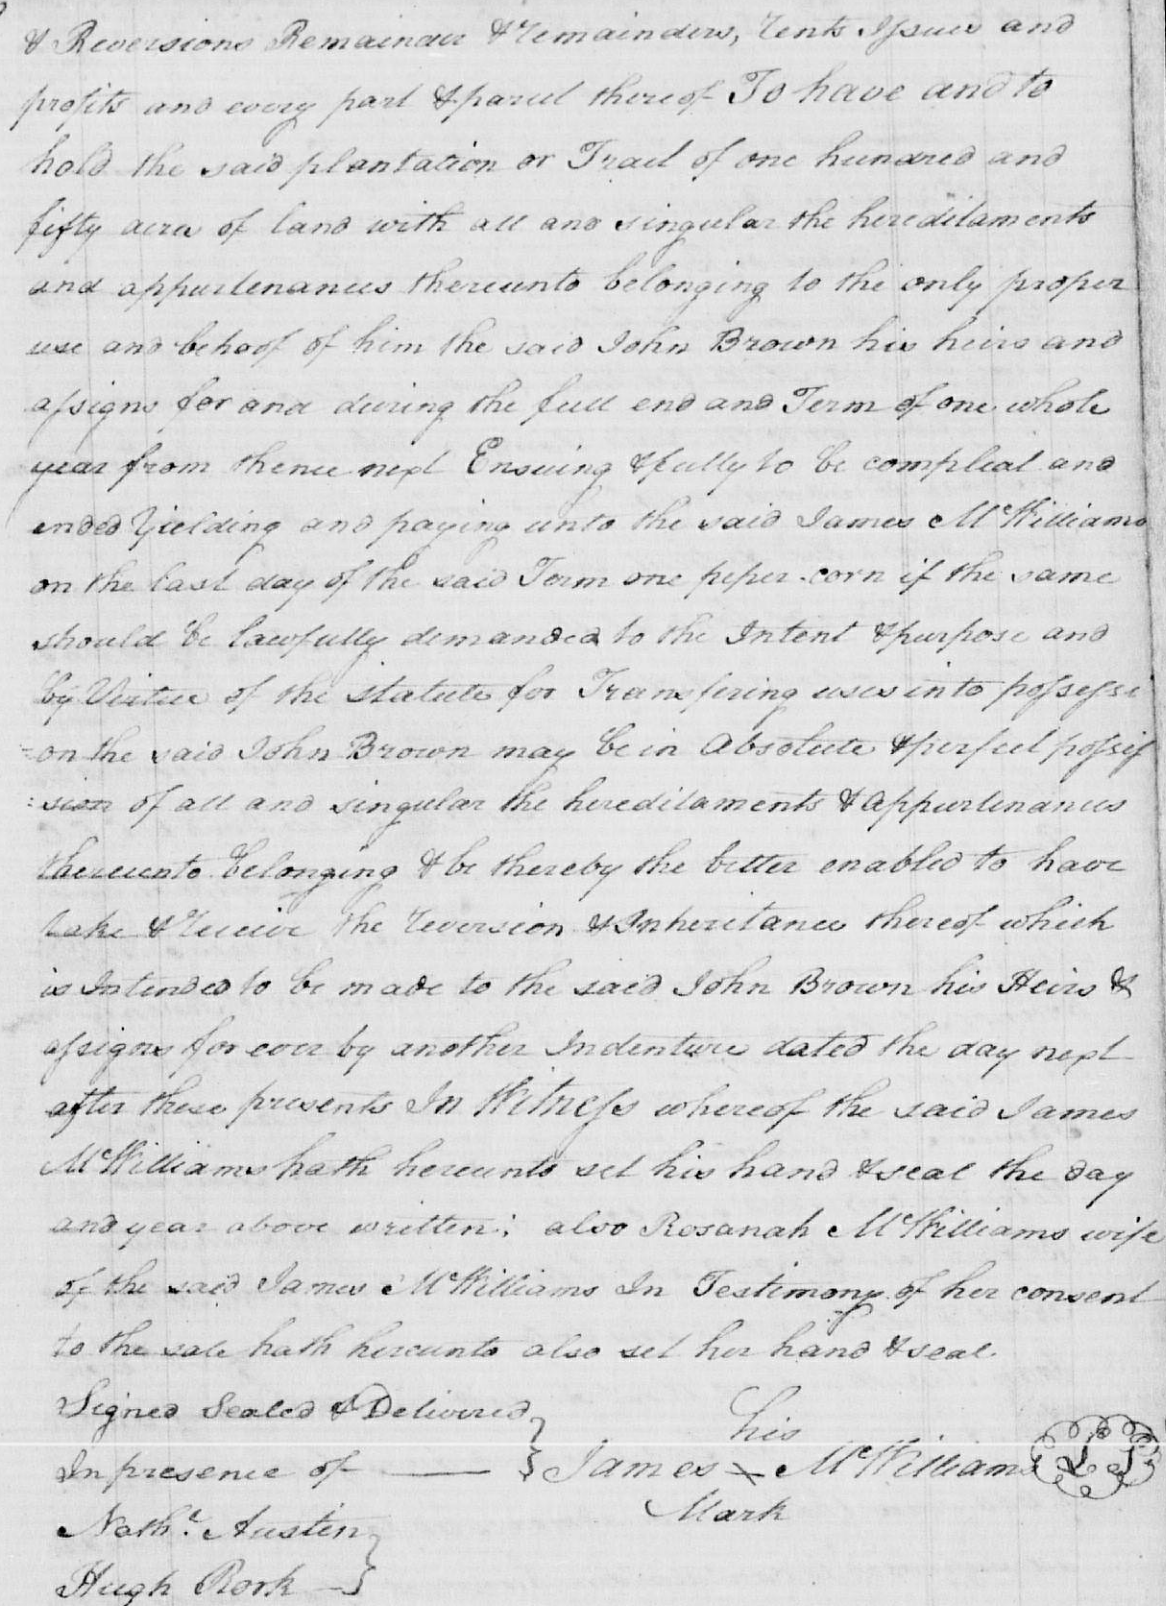 & Reversions Remainder & remainders, rents Issues and
profits and every part & parcel thereof To have and to
hold the said plantation or Tract of one hundred and
fifty acres of land with all and singular the hereditaments
and appurtenances thereunto belonging to the only proper
use and behoof of him the said John Brown his heirs and
assigns for and during the full end and Term of one whole
year from thence next Ensuing & fully to be compleat and
ended Yielding and paying unto the said James McWilliams
on the last day of the said Term one peper corn if the same
should be lawfully demanded to the Intent & purpose and
by Virtue of the statute for Transfering uses into possessi
=on the said John Brown may be in Absolute & perfect posses
=sion of all and singular the hereditaments & appurtenances
thereunto belonging & be thereby the better enabled to have
take & receive the reversion & Inheritance thereof which
is Intended to be made to the said John Brown his Heirs &
assigns for ever by another Indenture dated the day next
after these presents In Witness whereof the said James
McWilliams hath hereunto set his hand & seal the day
and year above written; also Rosanah McWilliams wife
of the said James McWilliams In Testimony of her consent
to the sale hath hereunto also set her hand & seal.
Signed Sealed & Delivered }
In presence of —— }
his
James x McWilliams L S
Mark
Nathl. Austin }
Hugh Rork – }